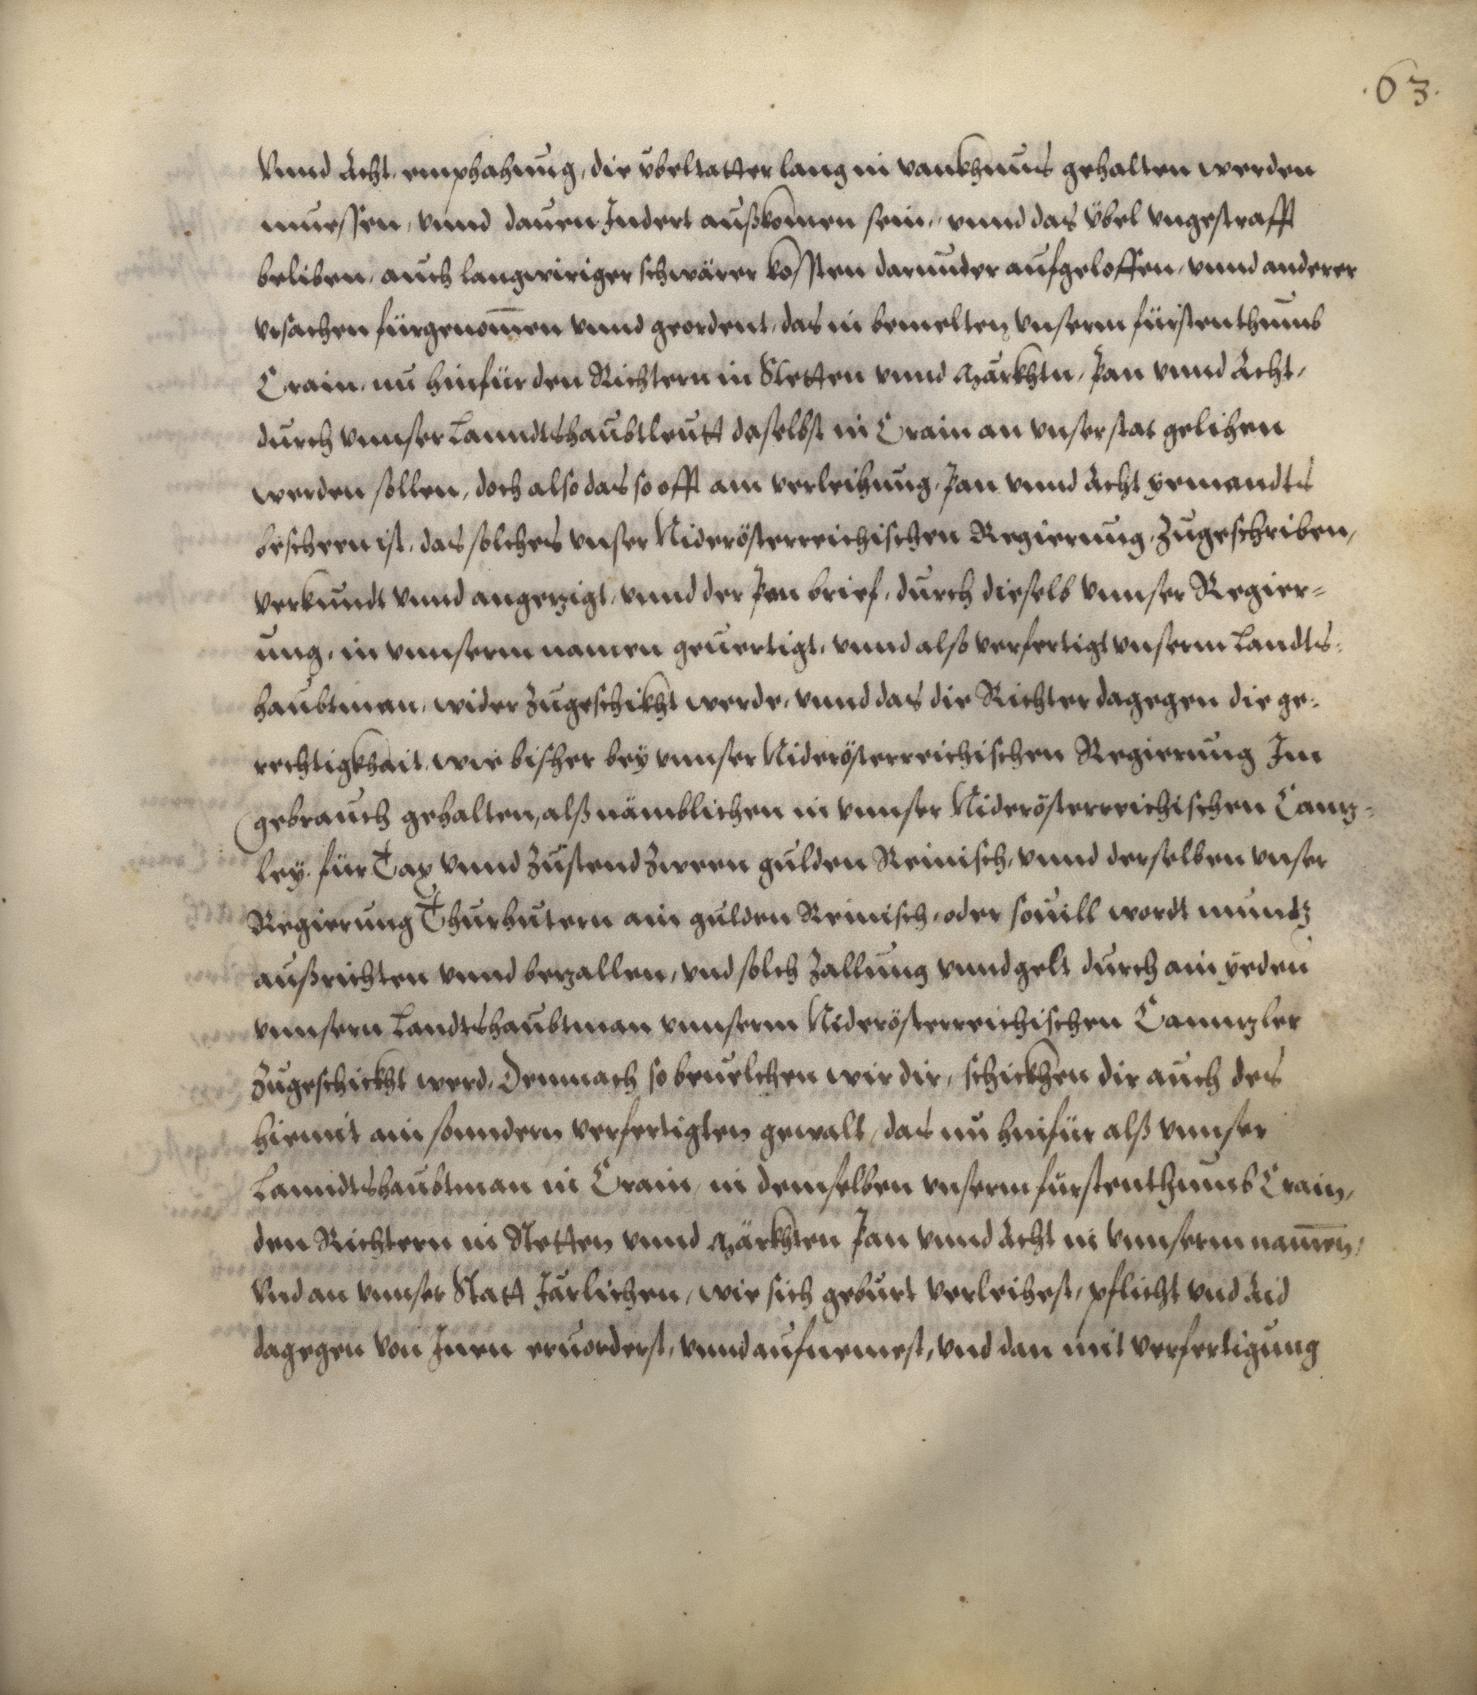 .63.
Vnnd Acht, emphahung, die vbeltatter lang in vankhnus gehalten werden
muessen, vnnd dauen Indert außkomen sein, vnnd das übel vngestrafft
beliben, auch langwiriger schwärer kossten darunder aufgeloffen, vnnd anderer
vrsachen fürgenomen vnnd geordent, das in bemelten vnserm fürstenthumb
Crain, nu hinfür den Richtern in Stetten vnnd Märkhtn, Pan vnnd Acht,
durch vnnser Lanndtshaubtleutt daselbst in Crain an vnser stat gelihen
werden sollen, doch also das so offt am verleihung, Pan vnnd Acht yemandts
beschern ist, das solches vnser Niderösterreichischen Regierung, zugeschriben,
verkundt vnnd angezeigt, vnnd der Pan brief, durch dieselb vnnser Regier-
ung, in vnnserm namen geuertigt, vnnd also verfertigt vnserm Landts-
haubtman, wider zugeschikht werde, vnnd das die Richter dagegen die ge-
rechtigkhait, wie bisher bey vnnser Niderösterreichischen Regierung Im
gebrauch gehalten, alß nämblichen in vnnser Niderösterreichischen Canz-
ley, für Tax vnnd zustend zween gulden Reinisch, vnnd derselben vnser
Regierung Thurhutern ain gulden Reinisch, oder souill werdt muntz
außrichten vnnd bezallen, vnd solch zallung vnnd gelt durch ain yeden
vnnsern Landtshaubtman vnnserm Niderösterreichischen Cannzler
zugeschickht werd, Demnach so beuelchen wir dir, schickhen dir auch des
hiemit ain sonndern verfertigten gewalt, das nu hinfür alß vnnser
Lanndtshaubtman in Crain, in demselben vnserm furstenthumb Crain,
den Richtern in Stetten vnnd Märkhten Pan vnnd Acht in vnnserm namen,
Vnd an vnnser Statt Järlichen, wie sich geburt verleihest, pflicht vnd Aid
dagegen von Inen eruorderst, vnnd aufnemest, vnd dan mit verfertigung